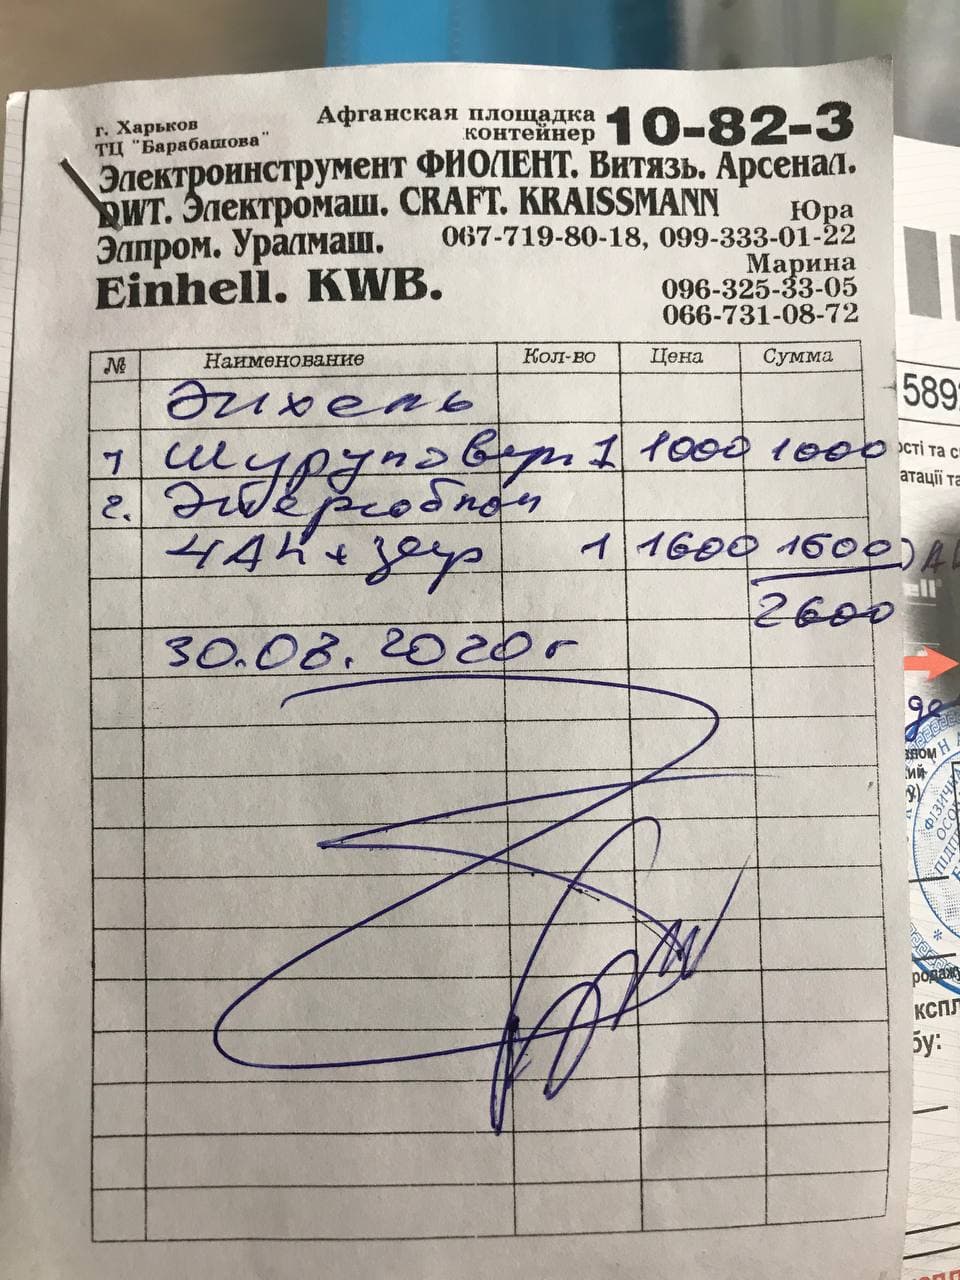 г. Харьков
ТЦ "Барабашова"
Афганская площадка
контейнер 10-82-3
Электроинструмент ФИОЛЕНТ. Витязь. Арсенал.
DWT. Электромаш. CRAFT. KRAISSMANN
Юра
Элпром. Уралмаш. 067-719-80-18, 099-333-01-22
Марина
Einhell. KWB. 096-325-33-05
066-731-08-72
№ Наименование Кол-во Цена Сумма
Энхель
1 Шуруповерт 1 1000 1000
2.
4Ah + зар 1 1600 1600
2600
30.08.2020г
589
ості та
атації та
ell
ФІЗИЧНА
ОСОБА
родажу
КСПЛ
бу: